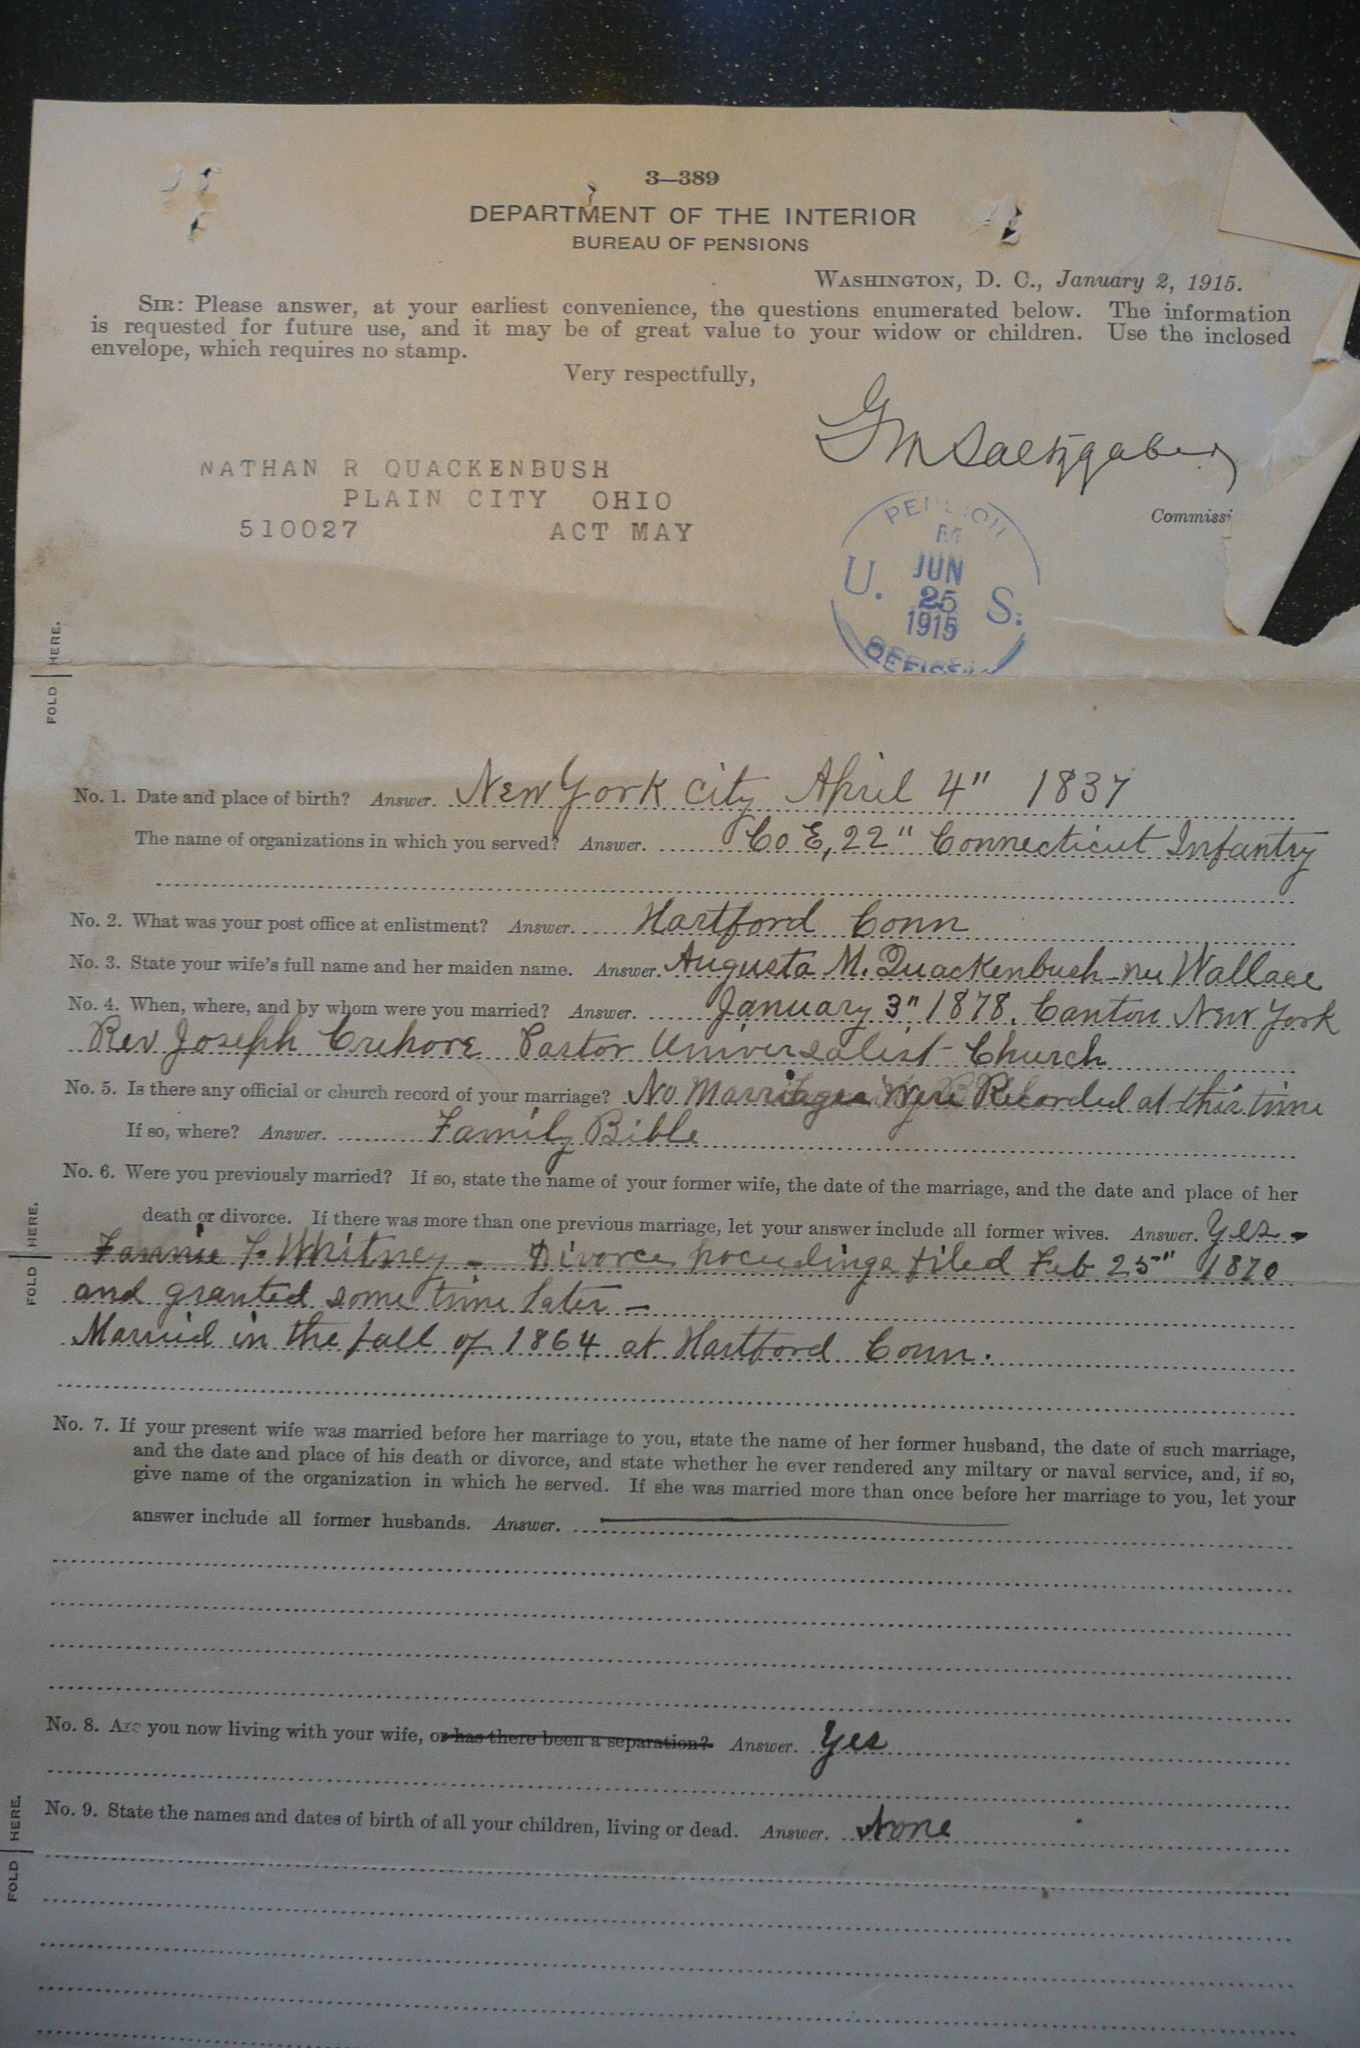 3—389
DEPARTMENT OF THE INTERIOR
BUREAU OF PENSIONS
WASHINGTON, D. C., January 2, 1915.
SIR: Please answer, at your earliest convenience, the questions enumerated below. The information
is requested for future use, and it may be of great value to your widow or children. Use the inclosed
envelope, which requires no stamp.
Very respectfully,
G M Saltzgaber
Commissi
NATHAN R QUACKENBUSH
PLAIN CITY OHIO
510027 ACT MAY
PENSION
U. S.
JUN
25
1915
OFFICE
FOLD HERE.
No. 1. Date and place of birth? Answer. New York City April 4" 1837
The name of organizations in which you served? Answer. Co E, 22" Connecticut Infantry
No. 2. What was your post office at enlistment? Answer. Hartford Conn
No. 3. State your wife's full name and her maiden name. Answer. Augusta M. Quackenbush nee Wallace
No. 4. When, where, and by whom were you married? Answer. January 3" 1878. Canton New York
Rev Joseph Crehore Pastor Universalist Church
No. 5. Is there any official or church record of your marriage? No Marriages Were Recorded at this time
If so, where? Answer. Family Bible
No. 6. Were you previously married? If so, state the name of your former wife, the date of the marriage, and the date and place of her
death or divorce. If there was more than one previous marriage, let your answer include all former wives. Answer. Yes -
Fannie F. Whitney - Divorce proceedings filed Feb 25" 1870
and granted some time later -
Married in the fall of 1864 at Hartford Conn.
FOLD HERE.
No. 7. If your present wife was married before her marriage to you, state the name of her former husband, the date of such marriage,
and the date and place of his death or divorce, and state whether he ever rendered any miltary or naval service, and, if so,
give name of the organization in which he served. If she was married more than once before her marriage to you, let your
answer include all former husbands. Answer.
No. 8. Are you now living with your wife, or has there been a separation? Answer. Yes
No. 9. State the names and dates of birth of all your children, living or dead. Answer. None
FOLD HERE.